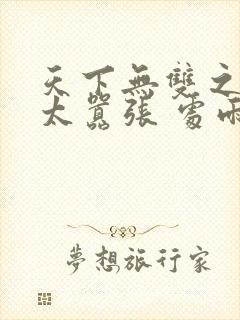 天下無雙之
太囂張 處雨
夢想旅行家